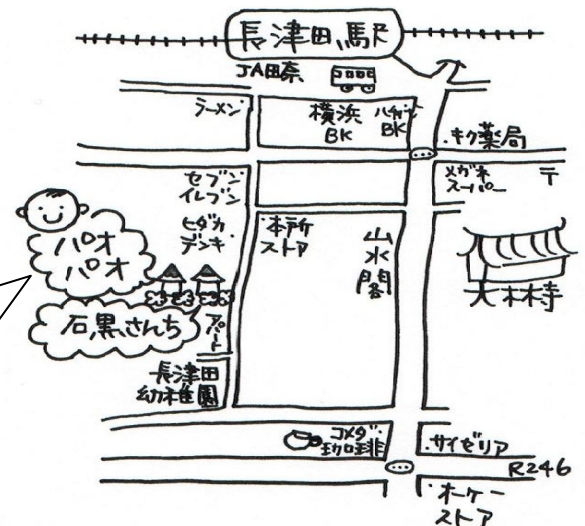 長津田駅
JA田奈
ラーメン
横浜
BK
BK
・キク薬局
セブン
イレブン
メガネ
スーパー
〒
ヒダカ
デンキ
本所
ストア
山水閣
大林寺
パオ
パオ
石黒さんち
アパート
長津田
幼稚園
コメダ
珈琲
・サイゼリア
R246
・オーケー
ストア